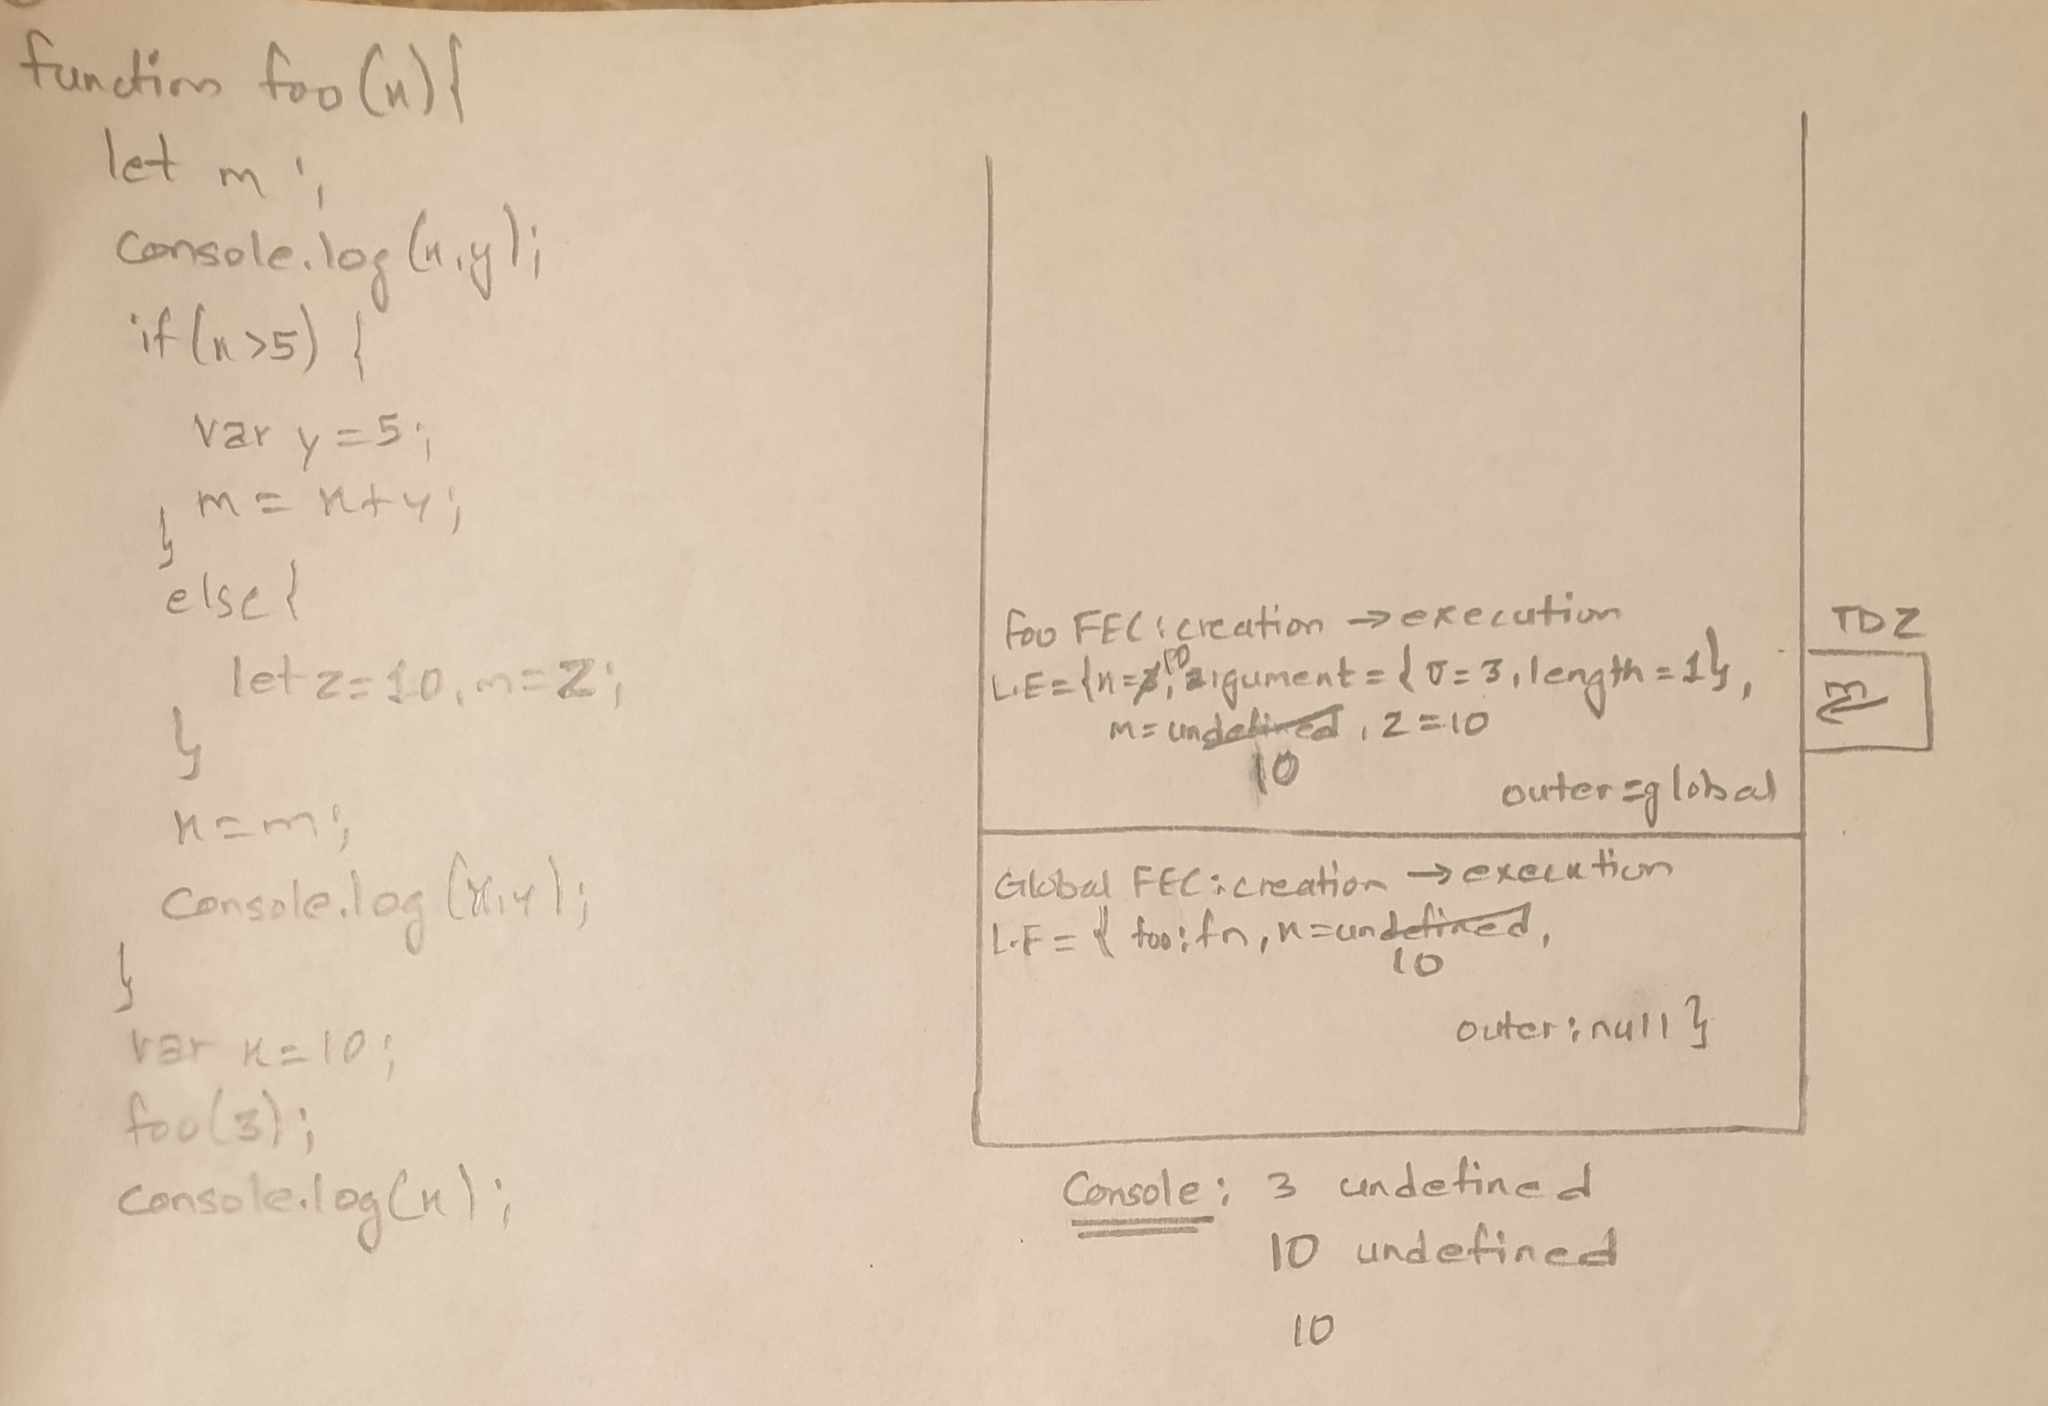 function foo(x){
let m;
console.log(x,y);
if(x>5) {
var y=5;
m=x+y;
}
else{
let z=10, m=z;
}
x=m;
console.log(x,y);
}
var x=10;
foo(3);
console.log(x);
foo FEC: creation → execution
L.E={x=3, 10 argument={0=3, length=1},
m=undefined, z=10
10
outer=global
TDZ
m
Global FEC: creation → execution
L.E={ foo: fn, x=undefined,
10
outer: null}
Console: 3 undefined
10 undefined
10